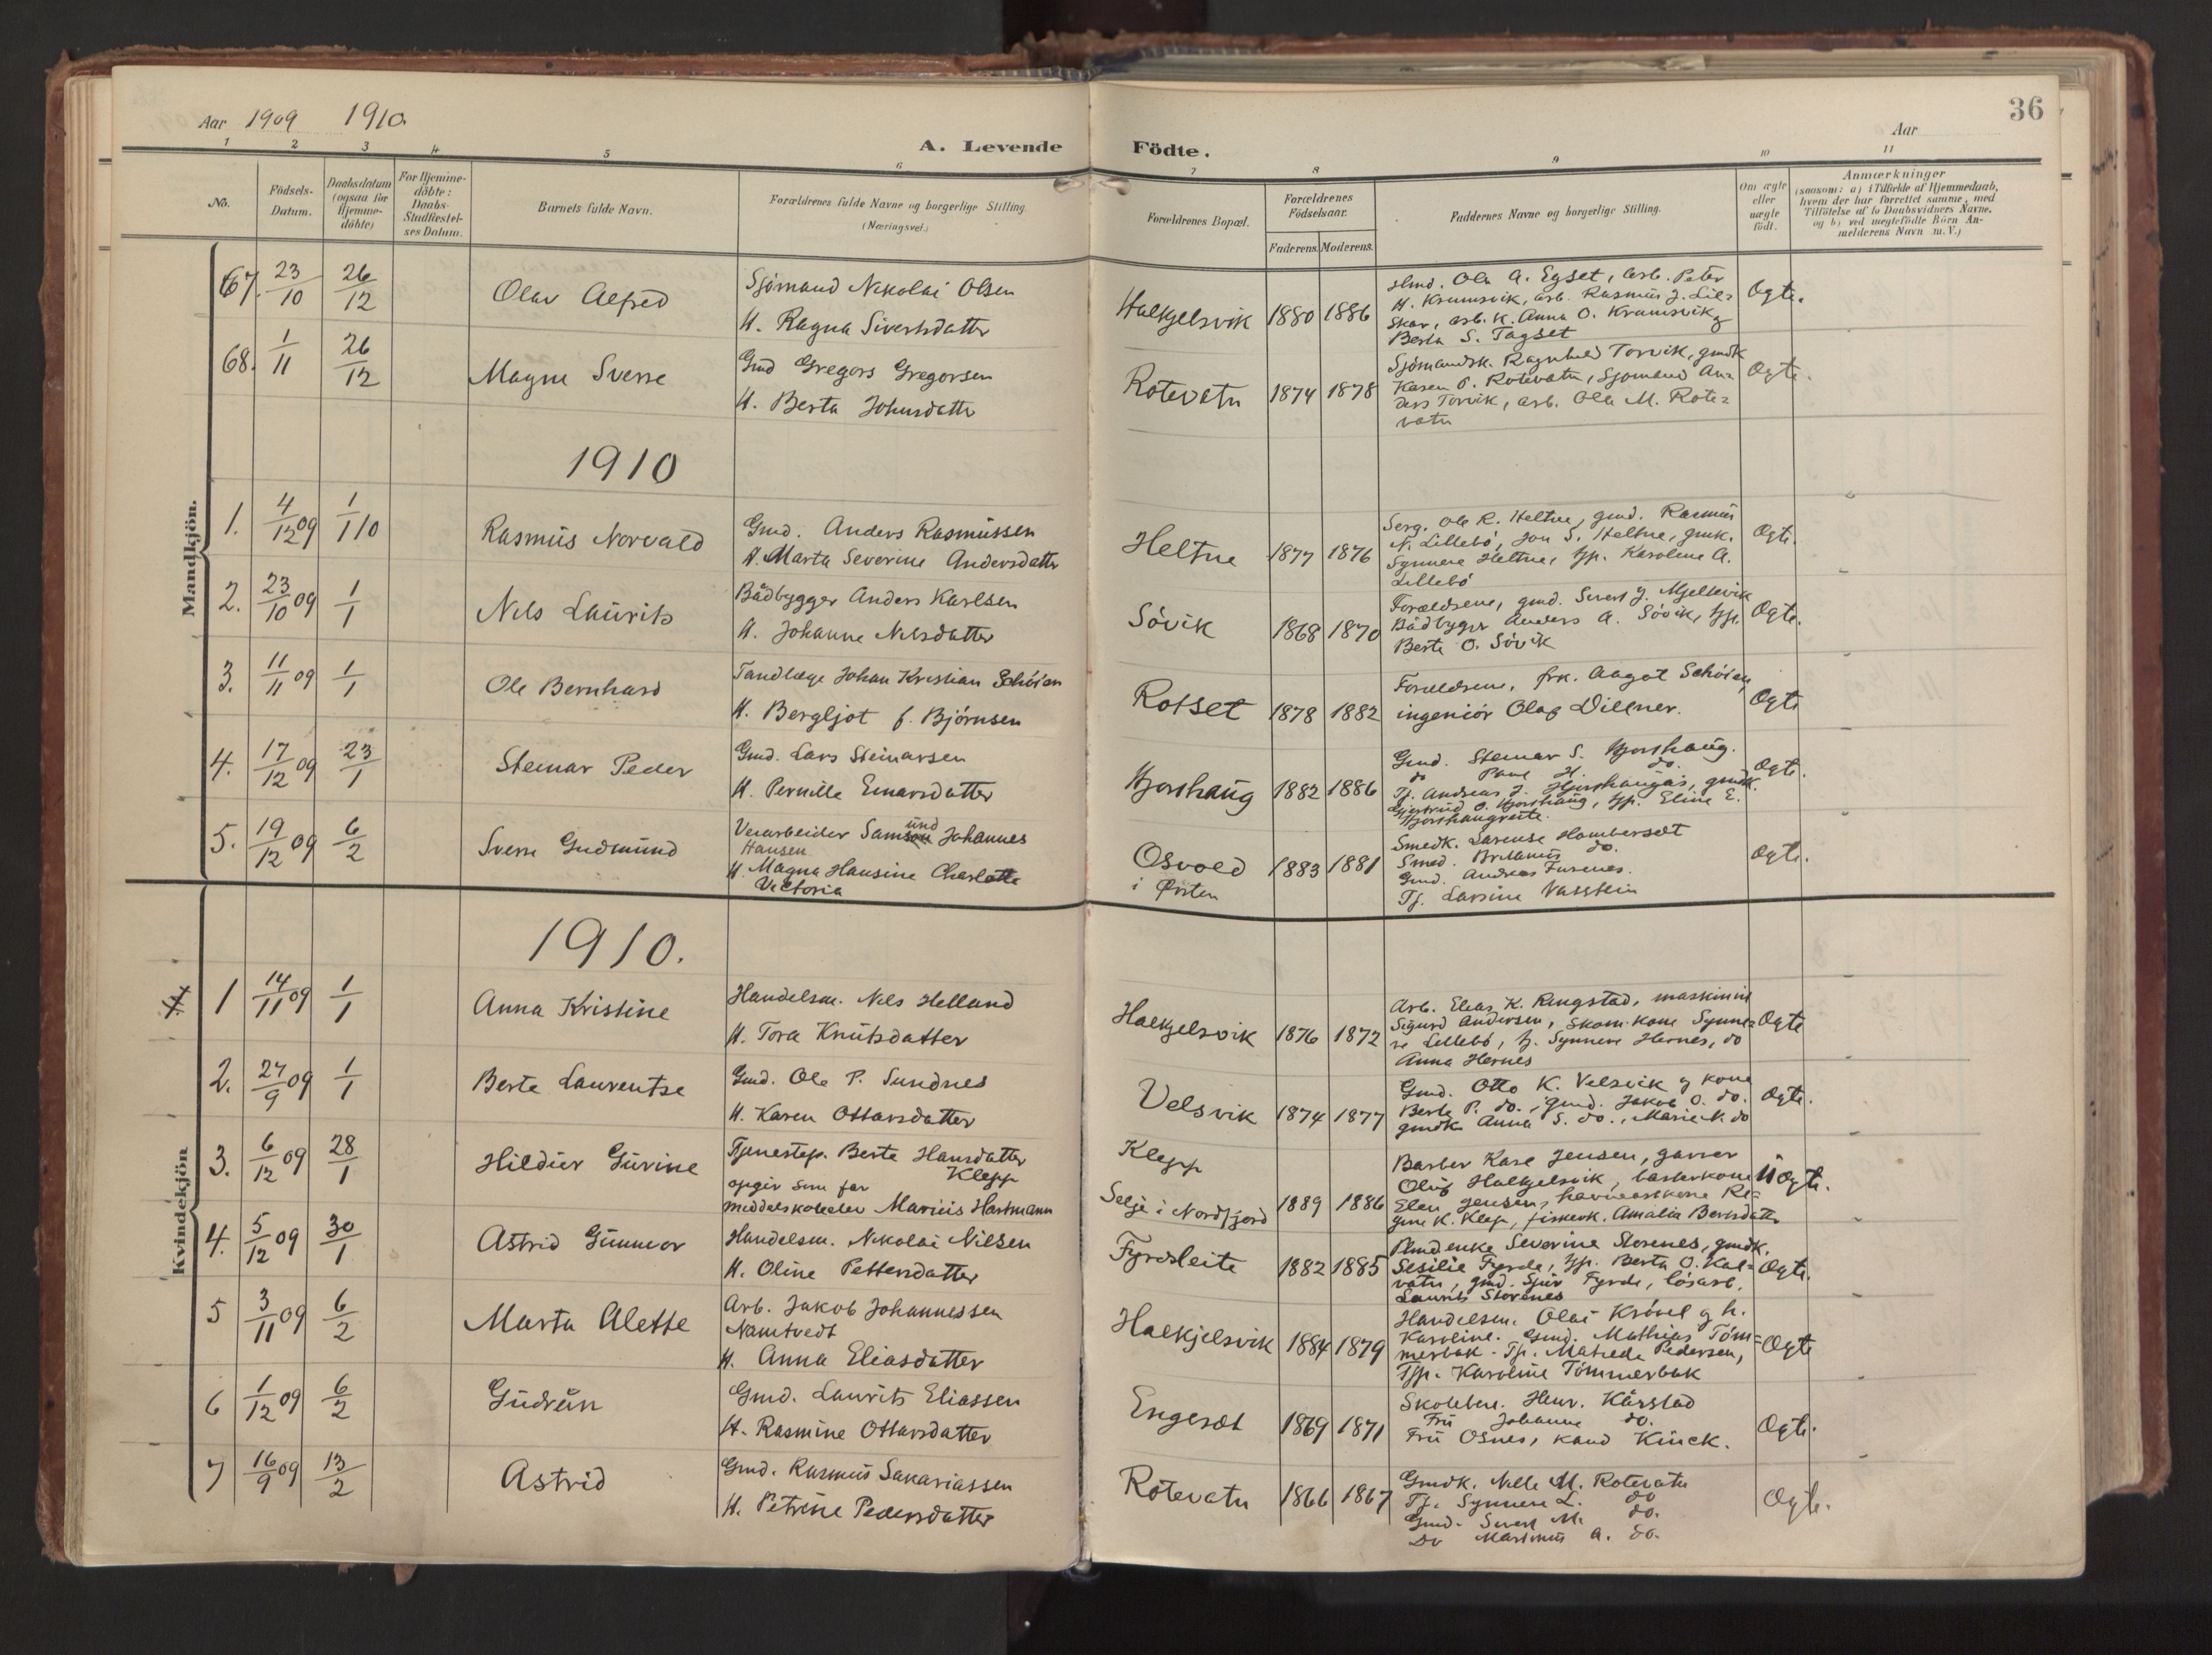 Aar 1909 1910.
A. Levende Födte.
Aar
36
1 2 3 4 5 6 7 8 9 10 11
No.
Födsels-
Datum.
Daabsdatum
(ogsaa for
Hjemme-
döbte)
For Hjemme-
döbte:
Daabs-
Stadfæstel-
ses Datum.
Barnets fulde Navn.
Forældrenes fulde Navne og borgerlige Stilling.
(Næringsvei.)
Forældrenes Bopæl.
Forældrenes
Födselsaar.
Faderens. Moderens.
Faddernes Navne og borgerlige Stilling.
Om ægte
eller
uægte
födt.
Anmærkninger
(saasom: a) i Tilfælde af Hjemmedaab,
hvem der har forrettet samme, med
Tilföielse af to Daabsvidners Navne.
og b) ved uægtefödte Börn An-
melderens Navn m. V.)
Mandkjön.
67. 23/10 26/12 Olav Alfred
Sjömand Nikolai Olsen
H. Ragna Sivertsdatter
Halkjelsvik 1880 1886
Ola A. Egset, arb. Peter
H. Kramsvik, arb. Rasmus J. Lil-
skar, arb. k. Anna O. Kramsvik og
Berta S. Tagset
Ogte.
68. 1/11 26/12 Magne Sverre
Gmd Gregors Gregorsen
H. Berta Johnsdatter
Rotevatn 1874 1878
Sjömandsk. Ragnhild Torvik, gmdk
Karen P. Rotevatn, Sjömand An-
ders Torvik, arb. Ola M. Rote-
vatn
Ogte.
1910
1. 4/12 09 1/1 10 Rasmus Norvald
Gmd. Anders Rasmussen
H. Marta Severine Andersdatter
Heltne 1877 1876
Serg. Ole R. Heltne, gmd. Rasmus
N. Lillebö, Jon S. Heltne, gmk.
Synnere Heltne, tjp. Karoline A.
Lillebö
Ogte.
2. 23/10 09 1/1 Nils Laurits
Bådbygger Anders Karlsen
H. Johanne Nilsdatter
Sövik 1868 1870
Forældrene, gmd. Sivert J. Mjellevik
Bådbyger Anders A. Sövik, tjp.
Berte O. Sövik
Ogte.
3. 11/11 09 1/1 Ole Bernhard
Tandlæge Johan Kristian Schöien
H. Bergljot f. Björnsen
Rotset 1878 1882
Forældrene, frk. Aagot Schöien,
ingeniör Olaf Dillner.
Ogte
4. 17/12 09 23/1 Steinar Peder
Gmd. Lars Steinarsen
H. Pernille Einarsdatter
Hjorthaug 1882 1886
Gmd. Steinar S. Hjorthaug.
do Paul H. do.
Tj. Andreas J. Hjorthaugás, gmdk.
Gjertrud O. Hjorthaug, tjp. Eline E.
Ogte.
5. 19/12 09 6/2 Sverre Gudmund
Verarbeider Samson und Johannes
Hansen
H. Magna Hansine Charlotte
Victoria
Osvold
i Örsten
1883 1881
Smedk. Larense Hamberset
Smed. do.
Gmd. Andreas Furenes.
Tj. Larsine Vasstein
Ogte.
1910.
Kvindekjön
1 14/11 09 1/1 Anna Kristine
Handelsm. Nils Helland
H. Tora Knutsdatter
Halkjelsvik 1876 1872
Arb. Elias K. Ringstad, maskinist
Sigurd Andersen, skom. kone Synne-
ve Lillebö, tj. Synnere Hernes, do
Anna Hernes
Ogte
2. 27/9 09 1/1 Berte Laurentse
Gmd. Ole P. Sundnes
H. Karen Ottarsdatter
Velsvik 1874 1877
Gmd. Otto K. Velsvik og kone
Berte P. do., gmd. Jakob O. do.
gmdk Anna S. do., Marie K. do
Ogte.
3. 6/12 09 28/1 Hildur Gurine
Tjenestep. Berte Hansdatter
Klepp
opgir som far
middelskolelev Marius Hartmann
Klepp
Selje i Nordfjord 1889 1886
Barber Karl Jensen, garver
Oluf Halkjelsvik, barberkone
Elen Jensen,
K. Klep, fiskerk. Amalia Berntsdatter
Uogte.
4. 5/12 09 30/1 Astrid Gunnvor
Handelsm. Nikolai Nilsen
H. Oline Pettersdatter
Fyrdsleite 1882 1885
Severine Storenes, gmdk.
Sesilie Fyrde, tjp. Berta O. Kal-
vatn, gmd. Sjur Fyrde, lösarb.
Laurits Storenes
Ogte.
5 3/11 09 6/2 Marta Alette
Arb. Jakob Johannessen
Namtvedt
H. Anna Eliasdatter
Halkjelsvik 1884 1879
Handelsm. Olai Krövel og h.
Karoline. Gmd. Mathias Töm-
merbak. Tjp. Matilde Pedersen,
Tjp. Karoline Tömmerbak
Ogte
6 1/12 09 6/2 Gudrun
Gmd. Laurits Eliassen
H. Rasmine Ottarsdatter
Engeset 1869 1871
Skolebest. Henr. Kårstad
Fru Johanne do.
Fru Osnes, kand Kinck.
Ogte.
7 16/9 09 13/2 Astrid
Gmd. Rasmus Sakariassen
H. Petrine Pedersdatter
Rotevatn 1866 1867
Gmdk. Nille M. Rotevatn
Tj. Synnere L. do
Gmd. Sivert M. do.
Do Martinus A. do.
Ogte.